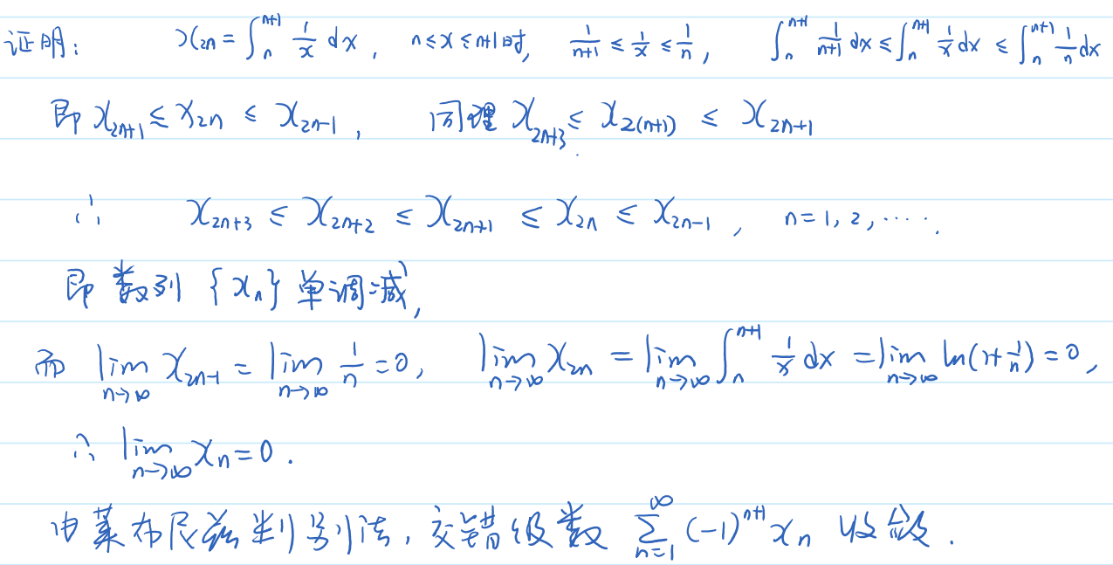 证明： $x_{2n} = \int_n^{n+1} \frac{1}{x} dx$， $n \le x \le n+1$ 时， $\frac{1}{n+1} \le \frac{1}{x} \le \frac{1}{n}$， $\int_n^{n+1} \frac{1}{n+1} dx \le \int_n^{n+1} \frac{1}{x} dx \le \int_n^{n+1} \frac{1}{n} dx$
即 $x_{2n+1} \le x_{2n} \le x_{2n-1}$， 同理 $x_{2n+3} \le x_{2(n+1)} \le x_{2n+1}$
∴ $x_{2n+3} \le x_{2n+2} \le x_{2n+1} \le x_{2n} \le x_{2n-1}$， $n = 1, 2, \cdots$.
即数列 $\{x_n\}$ 单调减，
而 $\lim_{n \to \infty} x_{2n-1} = \lim_{n \to \infty} \frac{1}{n} = 0$， $\lim_{n \to \infty} x_{2n} = \lim_{n \to \infty} \int_n^{n+1} \frac{1}{x} dx = \lim_{n \to \infty} \ln(1+\frac{1}{n}) = 0$，
∴ $\lim_{n \to \infty} x_n = 0$.
由莱布尼兹判别法，交错级数 $\sum_{n=1}^{\infty} (-1)^{n+1} x_n$ 收敛.